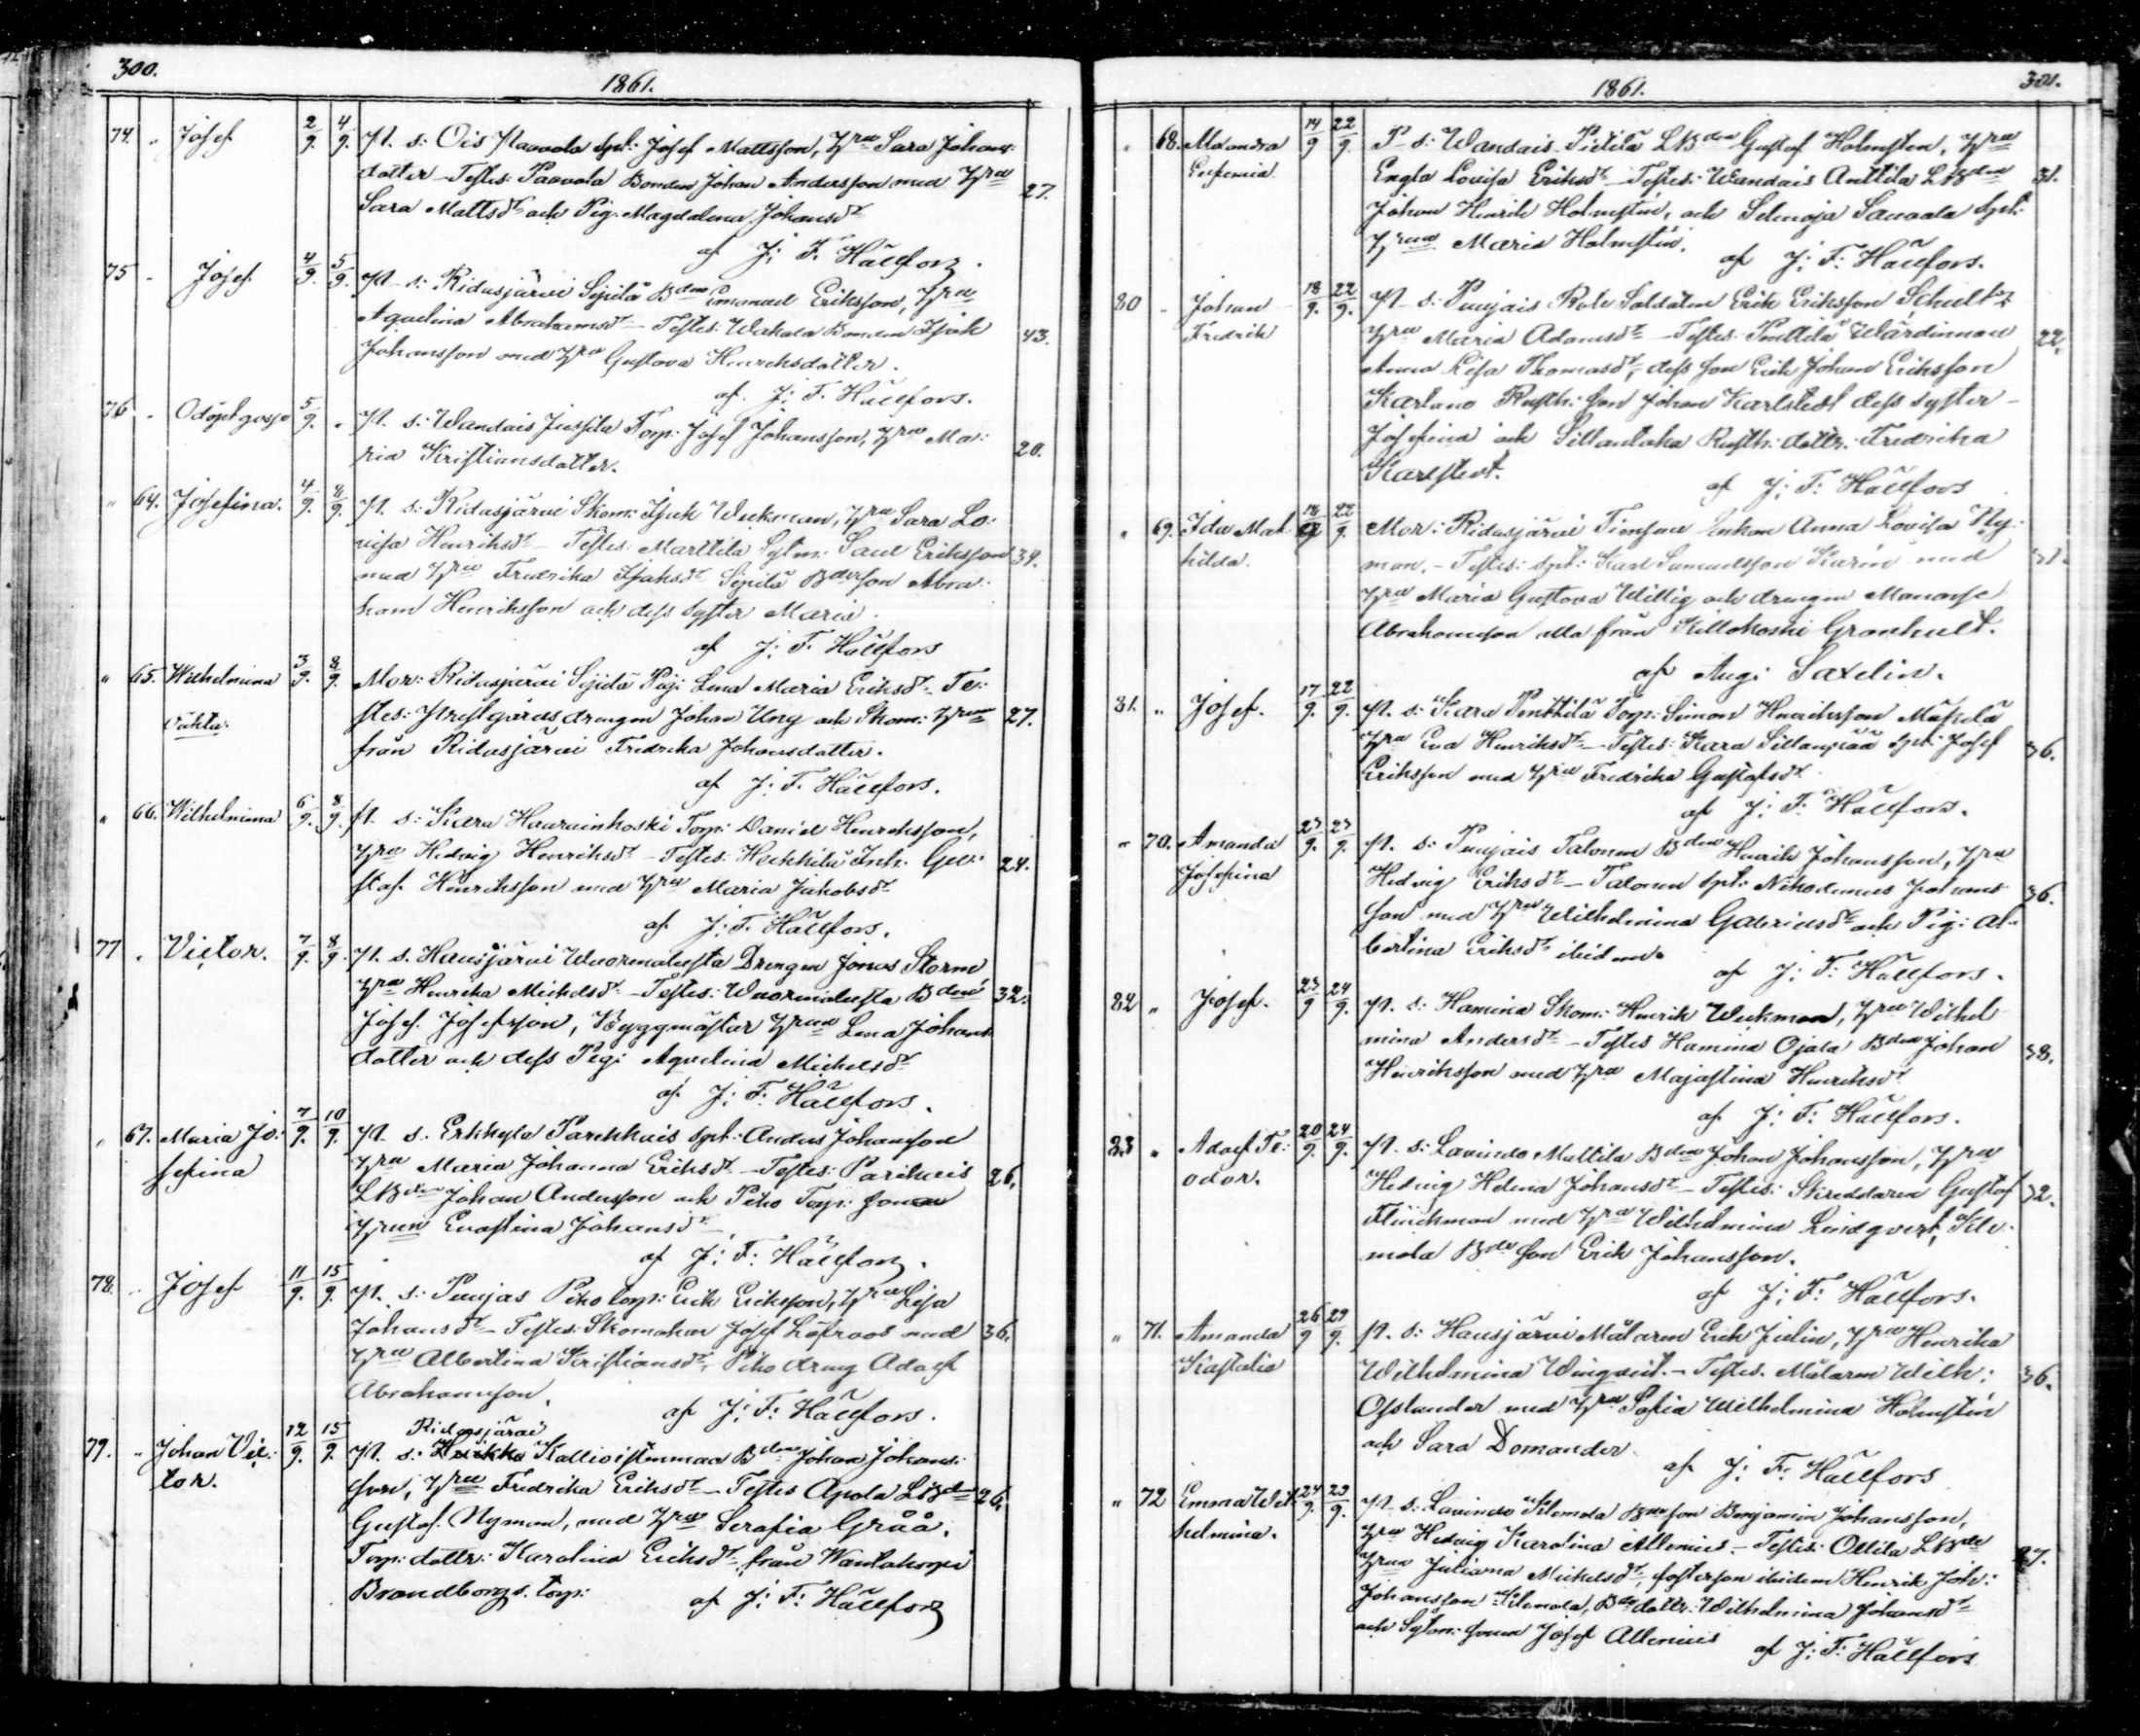 300.
1861.
74. " Josef 2/9. 4/9. Pt. s: Ois Paavola Spt: Josef Mattsson, Hru Sara Johans:
dotter – Testes: Paavola Bonden Johan Andersson med Hru
Sara Mattsdr och Pig: Magdalena Johansdr 27.
af J: F: Hällfors.
75 " Josef. 4/9. 5/9. Pt. s: Ridasjärvi Sipilä Bden Emanuel Eriksson, Hru
Aqvelina Abrahamsdr – Testes: Wakala Bonden Isak
Johansson med Hru Gustava Henrichsdotter. 43.
af. J: F. Hällfors.
76 " Odöpt gosse 5/9. " Pt. s: Wandais Jussila Torp: Josef Johansson, Hru Ma:
ria Kristiansdotter. 20.
" 64. Josefina. 4/9. 8/9. Pt. s: Ridasjärvi Skom: Isak Weckman, Hru Sara Lo:
visa Henriksdr – Testes: Marttila Sytm: Saul Eriksson 34.
med Hru Fredrika Isaksdr Sipilä Bdeson Abra:
ham Henriksson och dess syster Maria.
af J: F. Hällfors
" 65. Wilhelmina 3/9. 8/9. Mor: Ridasjärvi Sipilä Pig: Lena Maria Eriksdr – Te:
oäkta. stes: Prestgårds drengen Johan Ung och Skom: Hrun 27.
från Ridasjärvi Fredrika Johansdotter.
af J: F. Hällfors.
" 66. Wilhelmina 6/9. 8/9. Pt. s: Kara Haarainkoski Torp: Daniel Henrichsson,
Hru Hedvig Henriksdr – Testes: Heikkilä Inh. Gu:
staf. Henriksson med Hru Maria Jakobsdr 24.
af. J: F. Hällfors.
77 " Victor. 7/9. 8/9. Pt. s. Hausjärvi Wuorenalusta Drengen Jonas Storm
Hru Henrika Mickelsdr – Testes: Wuorenalusta Bden 32.
Josef. Josefsson, Byggmästar Hrun Lena Johans
dotter och dess Pig: Aqvelina Michelsdr
af. J: F: Hällfors.
" 67. Maria Jo: 7/9. 10/9. Pt. s. Erkkylä Parikkais Spt: Anders Johansson
sefina Hru Maria Johanna Eriksdr – Testes: Parikais 26.
LBden Johan Andersson och Piho Torp: sonen
Hrun Evastina Johansdr –
af J: F: Hällfors.
78. " Josef 11/9. 15/9. Pt. s: Puujas Piho torp: Erik Eriksson, Hru Lisa
Johansdr – Testes: Skomakar Josef Löfroos med 36.
Hru Albertina Kristiansdr, Piho dreng Adolf
Abrahamsson.
af J: F: Hällfors.
79. " Johan Vic: 12/9. 15/9. Ridasjärvi
tor. Pt. s: Kallioistenmaa Bden Johan Johans:
son, Hru Fredrika Eriksdr – Testes Apola LBden 26.
Gustaf. Nyman, med Hru Serafia Gråå.
Torp: dottr: Karolina Eriksdr från
Brandborgs. torp: af J: F: Hällfors
1861.
301.
" 68. Alexandra 14/9 22/9. Pt s: Wandais Pietilä LBden Gustaf Holmsten, Hru
Eufemia Engla Lovisa Eriksdr – Testes: Wandais Anttila LBden 31.
Johan Henrik Holmstén, och Selinoja Sauvala Spt:
Hrun Maria Holmstén.
af J: F: Hällfors.
80 " Johan 18/9. 22/9. Pt s: Puujais Role Soldaten Erik Eriksson Schultz
Fredrik Hru Maria Adamsdr – Testes: Penttilä Wärdinnan 22.
Anna Lisa Thomasdr, dess son Erik Johan Eriksson
Karlano Rusth: son Johan Karlstedt dess syster –
Josefina och Sillanloha Rusth: dottr: Fredrika
Karlstedt.
af J: F: Hällfors
" 69. Ida Mat 22/9. Mor: Ridasjärvi Enkan Anna Lovisa Ny:
hilda. man. – Testes: Spt: Karl Samuelsson Karén med 31.
Hru Maria Gustava Willig och drengen Manasse
Abrahamsson alla från Killokoski Granhult.
af Aug: Saxelin.
81. " Josef. 17/9. 22/9. Pt. s: Kara Penttilä Torp: Simon Henriksson Mäkelä
Hru Eva Henriksdr – Testes: Kara Sillanpää Spt: Josef 36.
Eriksson med Hru Fredrika Gustafsdr
af J: F: Hällfors.
" 70. Amanda 23/9. 23/9. Pt. s: Puujais Talonen Bden Henrik Johansson, Hru
Josefina Hedvig Eriksdr – Talonen Spt: Nikodemus Johans 36.
son med Hru Wilhelmina Gabrielsdr och Pig: Al:
bertina Eriksdr ibidem.
af J: F: Hällfors.
82 " Josef. 23/9 24/9. Pt. s: Hamina Skom: Henrik Weckman, Hru Wilhel
mina Andersdr – Testes Hamina Ojala Bden Johan 38.
Henriksson med Hru Majastina Henriksdr
af J: F: Hällfors.
83 " Adolf Te: 20/9. 24/9. Pt. s: Lavindo Mattila Bden Johan Johansson, Hru
odor. Hedvig Helena Johansdr – Testes: Skreddaren Gustaf 32.
Flinckman med Hru Wilhelmina Lindqvist, Kle:
mola Bde son Erik Johansson.
af J: F: Hällfors.
" 71. Amanda 26/9 29/9. Pt. s: Hausjärvi Målaren Erik Julin, Hru Henrika
Kastalia Wilhelmina Winqvist. – Testes. Målaren Wilh: 36.
Osslander med Hru Sofia Wilhelmina Holmstén
och Sara Domander.
af J: F: Hällfors
" 72 Emma Wil 24/9. 29/9. Pt. s: Lavindo Klemola Bdeson Benjamin Johansson,
helmina. Hru Hedvig Karolina Allenius – Testes: Ollila LBde 27.
Hrun Juliana Mickelsdr, fosterson ibidem Henrik Joh:
Johansson Klemola, Bde dottr: Wilhelmina Johansdr
och Sytn: sonen Josef Allenius
af J: F: Hällfors